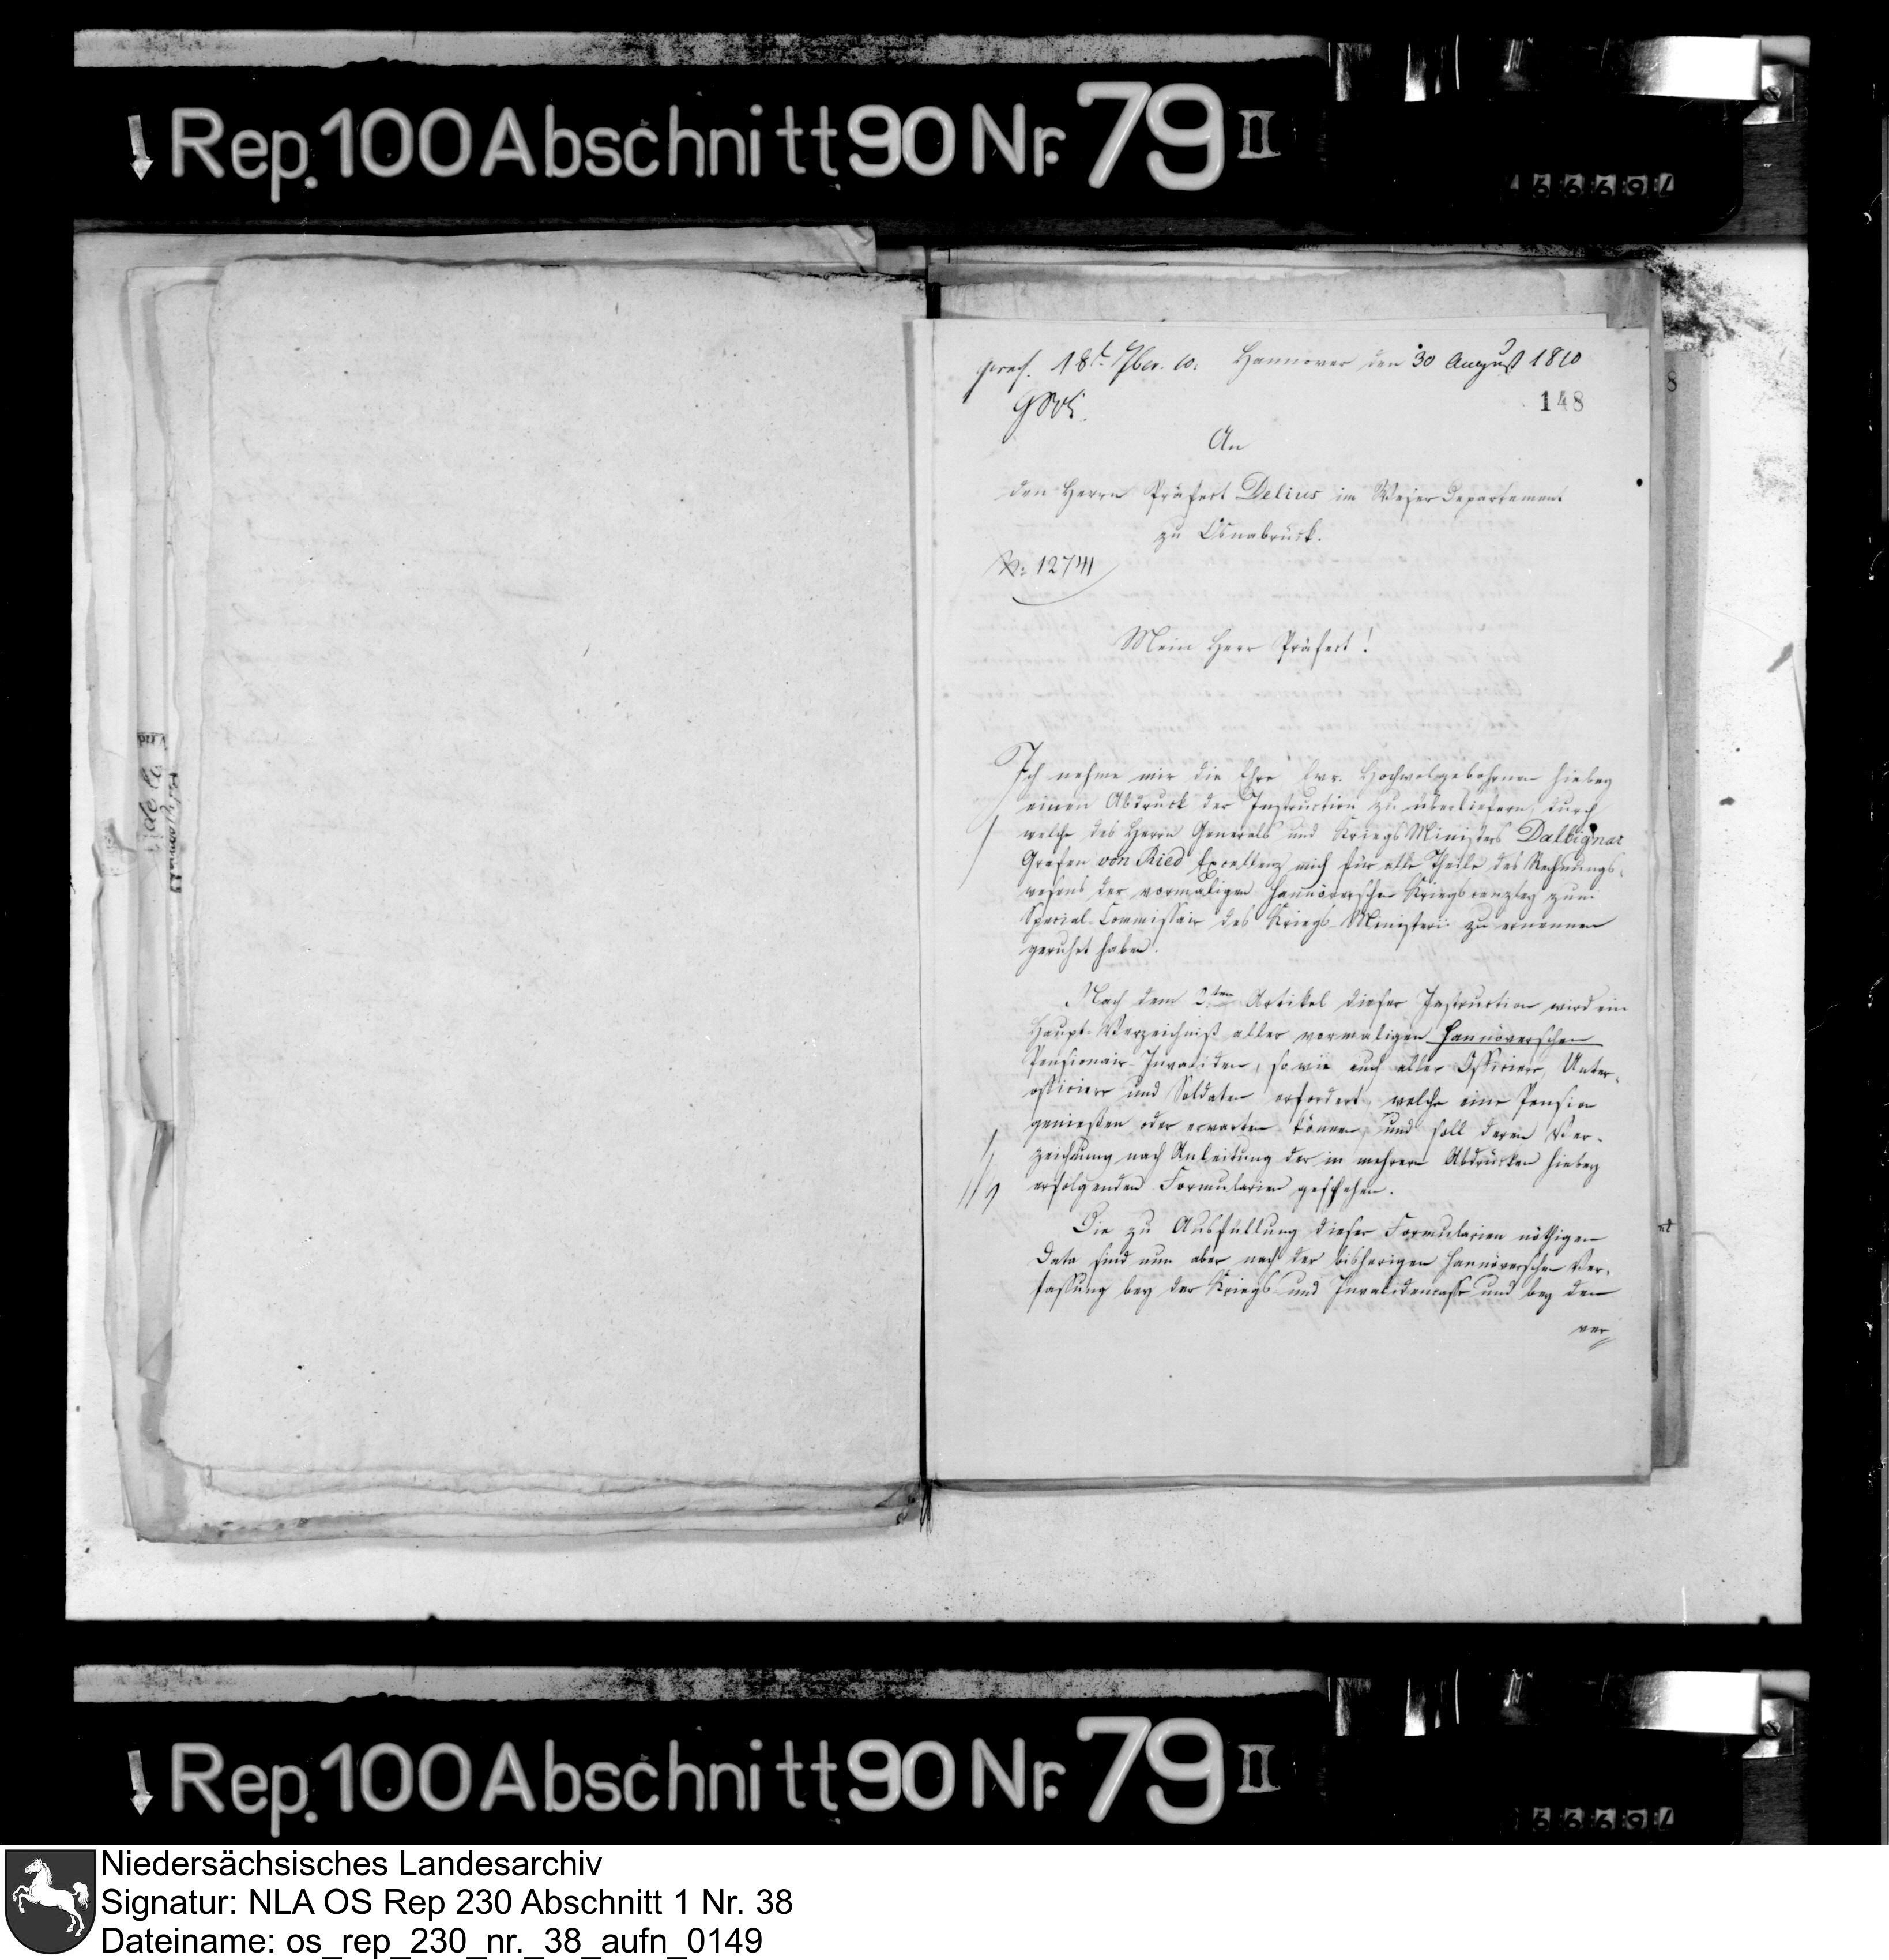 Rep. 100 Abschnitt 90 Nr. 79 II
præs. 18t. 7ber. 10. Hannover den 30 August 1810
148
An
den Herrn Präfect Delius im Weser Departement
zu Osnabrück.
No: 12741
Mein Herr Präfect!
Ich nehme mir die Ehre Ewr. Hochwolgebohrnen hiebey
einen Abdruck der Instruction zu überliefern, durch
welche des Herrn Generals und Kriegs Ministers Dalbignac
Grafen von Ried Excellenz mich für alle Theile des Rechnungs-
wesens der vormaligen Hannöverschen Kriegscanzley zum
Special-Commissair des Kriegs-Ministerii zu ernennen
geruhet haben.
Nach dem 2ten Artikel dieser Instruction wird ein
Haupt-Verzeichniß aller vormaligen Hannöverschen
Pensionair-Invaliden, so wie auch aller Officiere, Unter-
officiere und Soldaten erfordert, welche eine Pension
genießen oder erwarten können, und soll deren Ver-
zeichnung nach Anleitung der in mehrern Abdrücken hiebey
erfolgenden Formularien geschehen.
Die zu Ausfüllung dieser Formularien nöthigen
Data sind nun aber nach der bisherigen Hannöverschen Ver-
fassung bey der Kriegs- und Invalidencasse und bey den
ver-
Rep. 100 Abschnitt 90 Nr. 79 II
Niedersächsisches Landesarchiv
Signatur: NLA OS Rep 230 Abschnitt 1 Nr. 38
Dateiname: os_rep_230_nr._38_aufn_0149